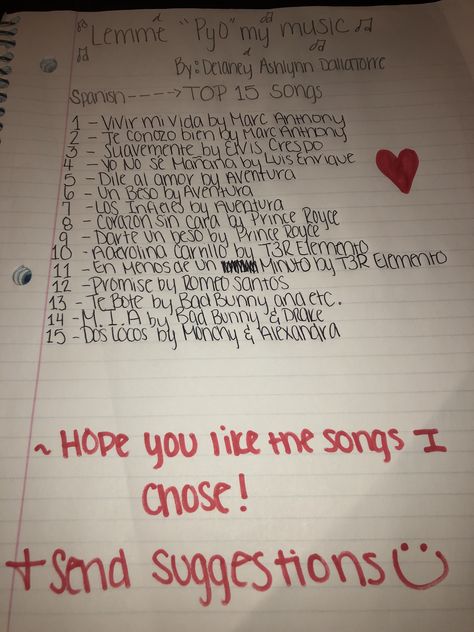 Lemme "Pyo" my music
By: Delaney Ashlynn Dallatorre
Spanish -----> TOP 15 SONGS
1 - Vivir mi vida by Marc Anthony
2 - Te conozo bien by Marc Anthony
3 - Suavemente by Elvis Crespo
4 - Yo No Se Mañana by Luis Enrique
5 - Dile al amor by Aventura
6 - Un Beso by Aventura
7 - Los Infieles by Aventura
8 - Corazon Sin Cara by Prince Royce
9 - Darte un beso by Prince Royce
10 - Aerolina Carrillo by T3R Elemento
11 - En Menos de un Minuto by T3R Elemento
12 - Promise by Romeo Santos
13 - Te Bote by Bad Bunny and etc.
14 - M.I.A by Bad Bunny & Drake
15 - Dos Locos by Monchy & Alexandra
~ Hope you like the songs I
chose!
+ Send suggestions